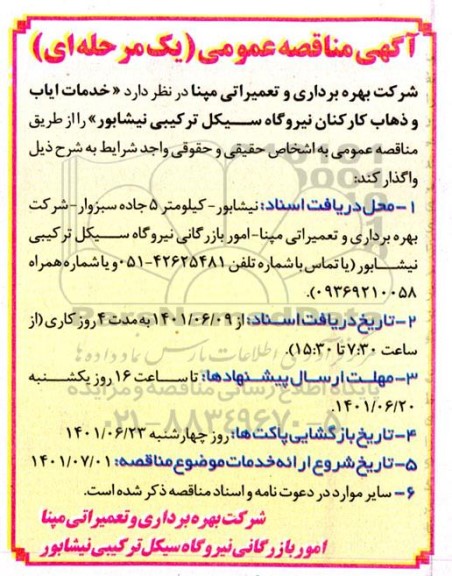 آگهی مناقصه عمومی (یک مرحله ای)
شرکت بهره برداری و تعمیراتی مپنا در نظر دارد « خدمات ایاب
و ذهاب کارکنان نیروگاه سیکل ترکیبی نیشابور » را از طریق
مناقصه عمومی به اشخاص حقیقی و حقوقی واجد شرایط به شرح ذیل
واگذار کند:
۱- محل دریافت اسناد: نیشابور- کیلومتر ۵ جاده سبزوار- شرکت
بهره برداری و تعمیراتی مپنا- امور بازرگانی نیروگاه سیکل ترکیبی
نیشابور (یا تماس با شماره تلفن ۴۲۶۲۵۴۸۱-۰۵۱ و یا شماره همراه
۰۹۳۶۹۲۱۰۰۵۸).
۲- تاریخ دریافت اسناد: از ۱۴۰۱/۰۶/۰۹ به مدت ۴ روز کاری (از
ساعت ۷:۳۰ تا ۱۵:۳۰).
۳- مهلت ارسال پیشنهادها: تا ساعت ۱۶ روز یکشنبه
۱۴۰۱/۰۶/۲۰.
۴- تاریخ بازگشایی پاکت ها: روز چهارشنبه ۱۴۰۱/۰۶/۲۳
۵- تاریخ شروع ارائه خدمات موضوع مناقصه: ۱۴۰۱/۰۷/۰۱
۶- سایر موارد در دعوت نامه و اسناد مناقصه ذکر شده است.
شرکت بهره برداری و تعمیراتی مپنا
امور بازرگانی نیروگاه سیکل ترکیبی نیشابور
پایگاه اطلاع رسانی مناقصه و مزایده
۰۲۱-۸۸۳۴۹۶۷۰-۵